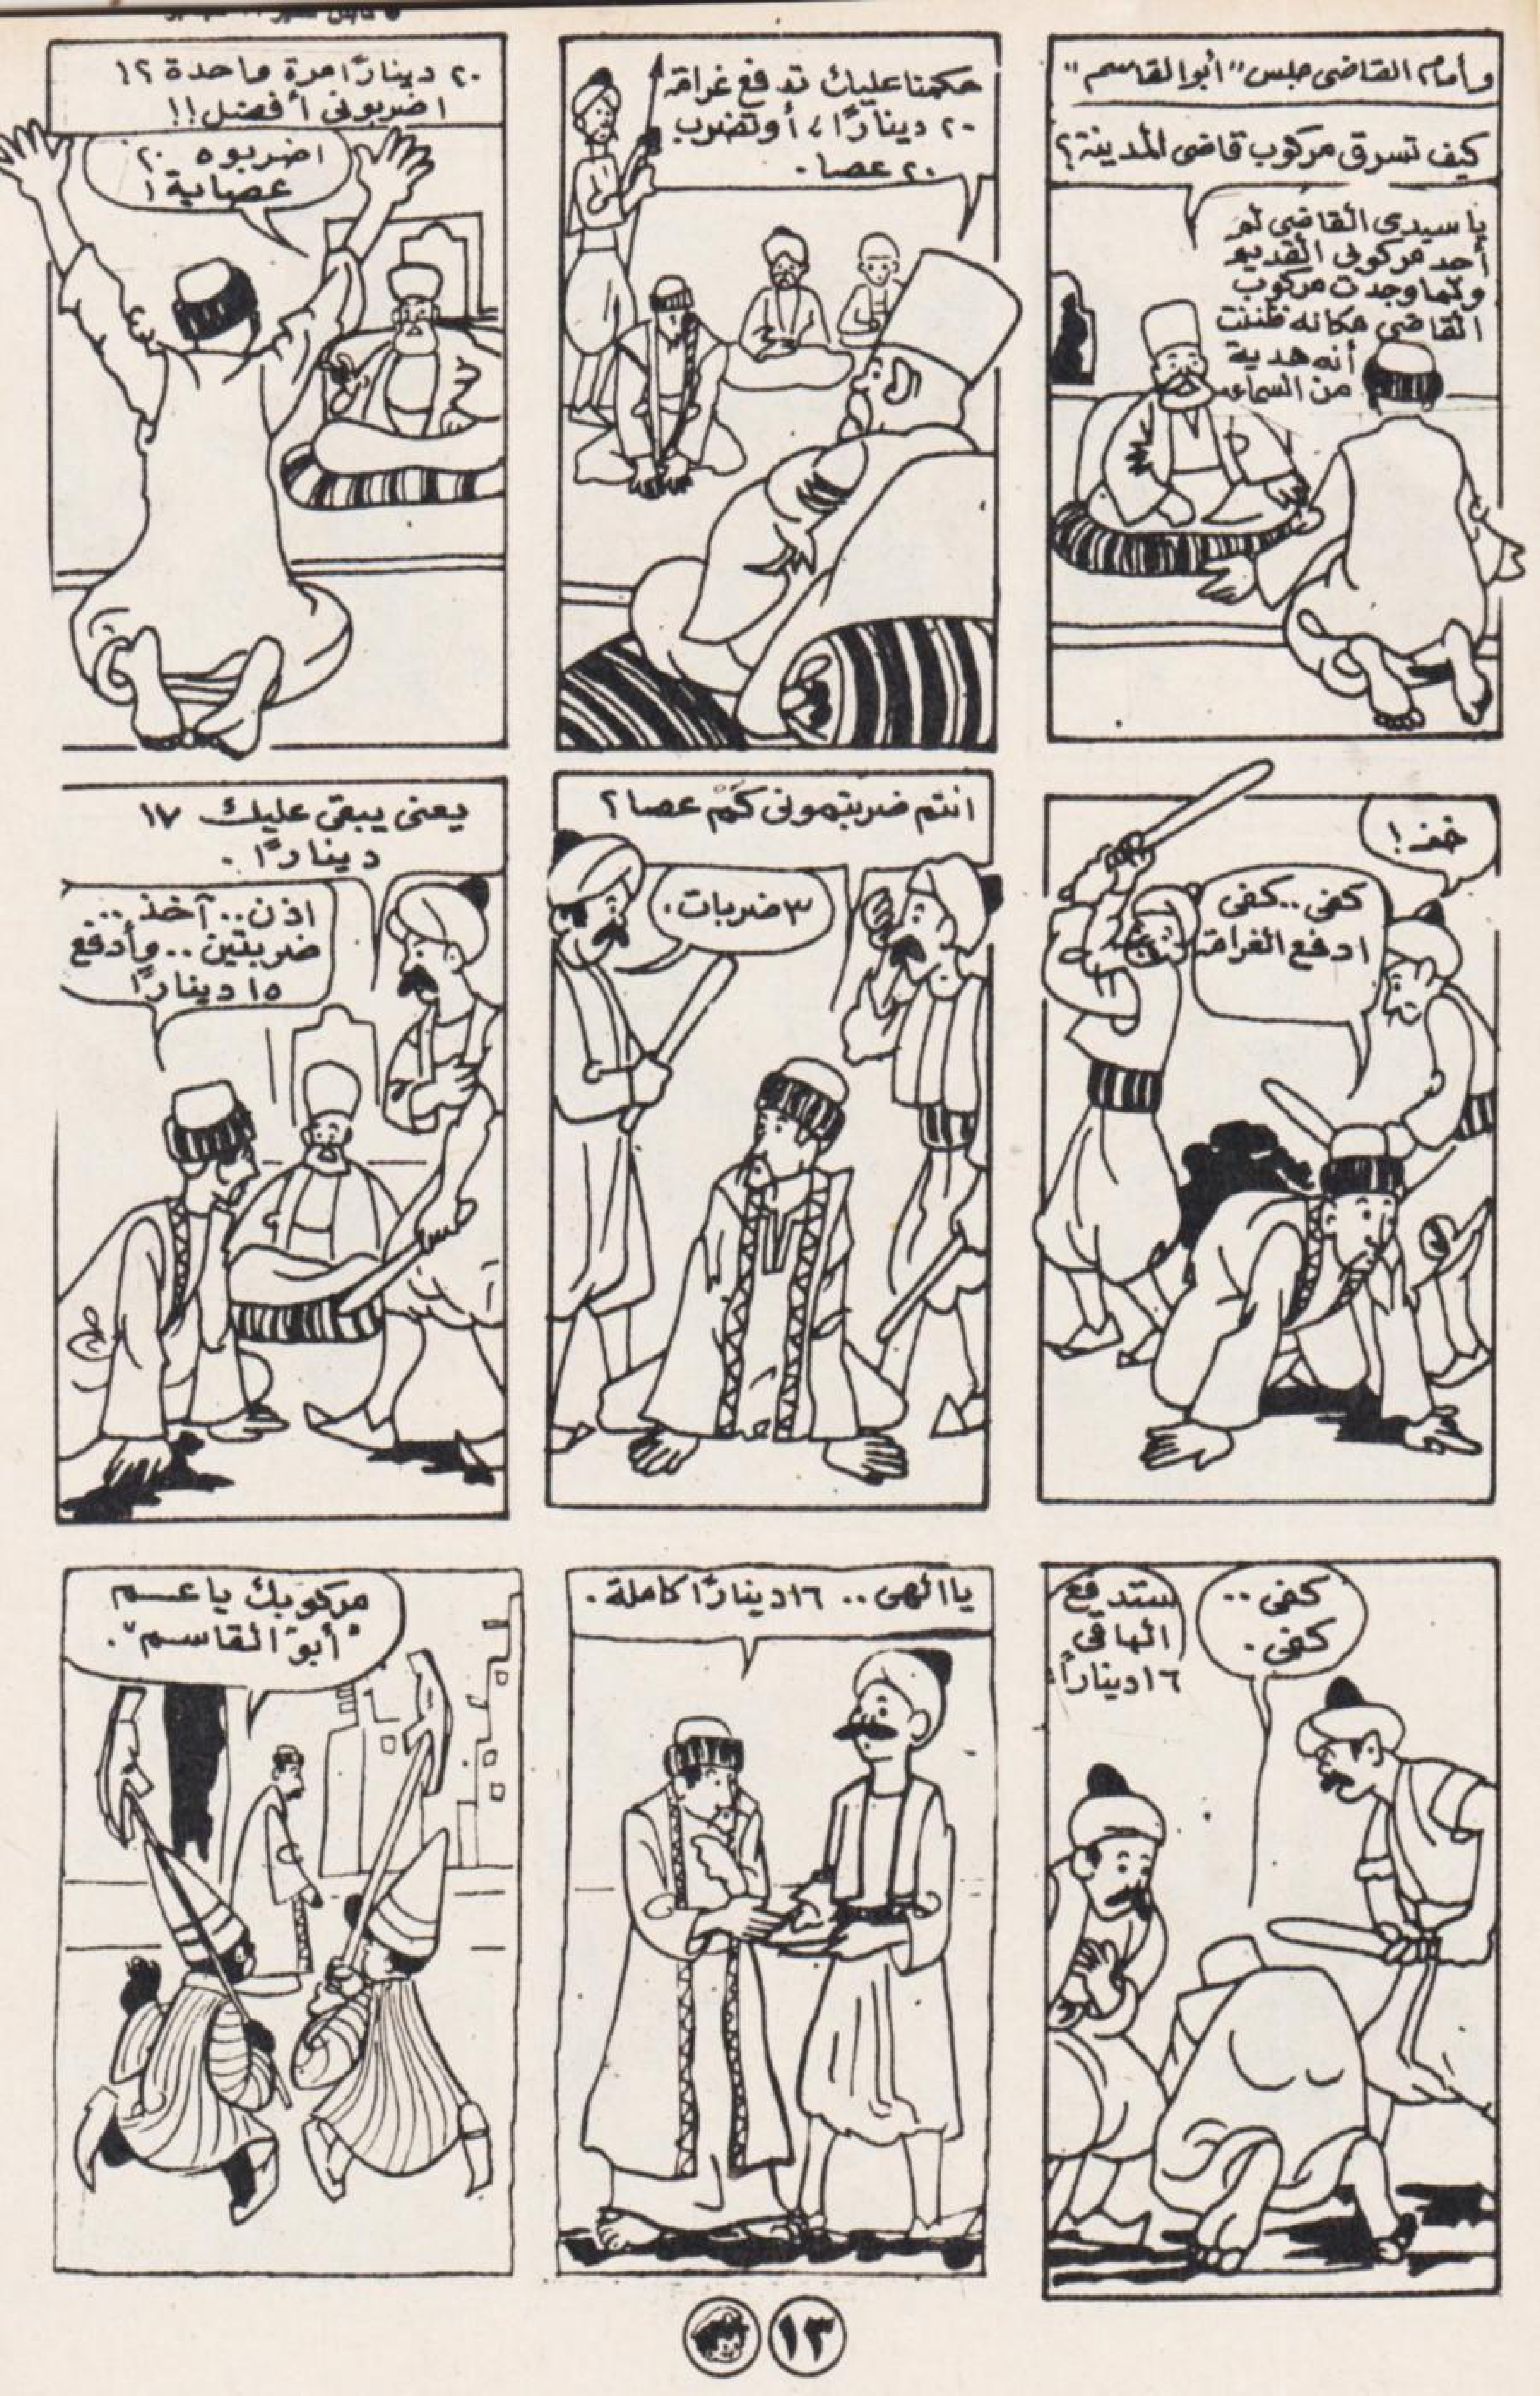 وأمام القاضى جلس "أبوالقاسم"
كيف تسرق مركوب قاضى المدينة؟
يا سيدى القاضى لم
أجد مركوبى القديم
ولما وجدت مركوب
القاضى مكانه ظننت
أنه هدية
من السماء.
حكمنا عليك تدفع غرامة
٢٠ دينارًا، أو تضرب
٢٠ عصا.
٢٠ دينارًا مرة واحدة ؟!
اضربونى أفضل!!
اضربوه ٢٠
عصاية!
خذ!
كفى.. كفى
ادفع الغرامة
انتم ضربتمونى كَمْ عصا؟
٣ ضربات.
يعنى يبقى عليك ١٧
دينارًا.
اذن.. آخذ..
ضربتين.. وأدفع
١٥ دينارًا
كفى..
كفى.
ستدفع
الباقى
١٦ دينارًا
يا الهى.. ١٦ دينارًا كاملة.
مركوبك يا عم
"أبو القاسم".
١٣